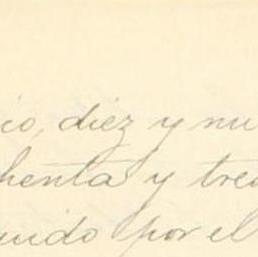 io, diez y nu
henta y tre
uido por el